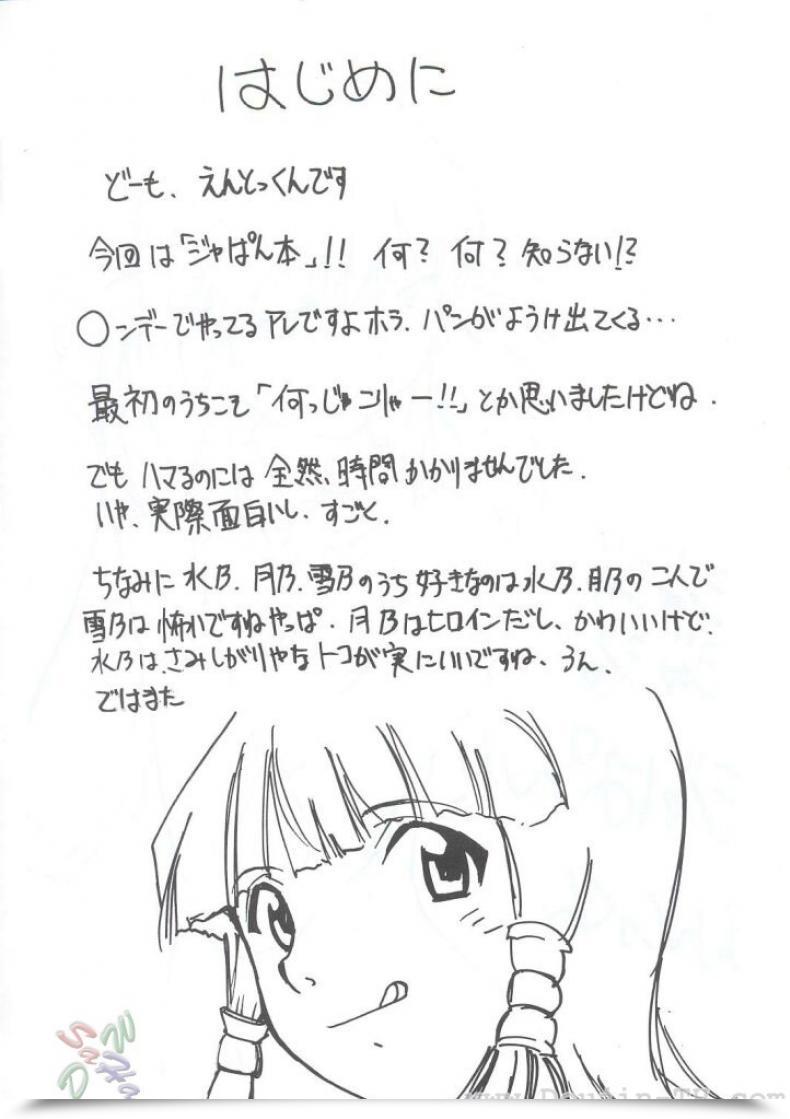 はじめに
どーも、えんとっくんです
今回は「ジャぱん本」!! 何? 何? 知らない!?
○ンデーでやってるアレですよホラ、パンがようけ出てくる…
最初のうちこそ「何っじゃこりゃー!!」とか思いましたけどね.
でもハマるのには全然、時間かかりませんでした.
いや、実際面白いし、すごく.
ちなみに水乃.月乃.雪乃のうち好きなのは水乃.月乃の二人で
雪乃は怖いですねやっぱ.月乃はヒロインだし、かわいいけど.
水乃は、さみしがりやなトコが実にいいですね、うん.
ではまた